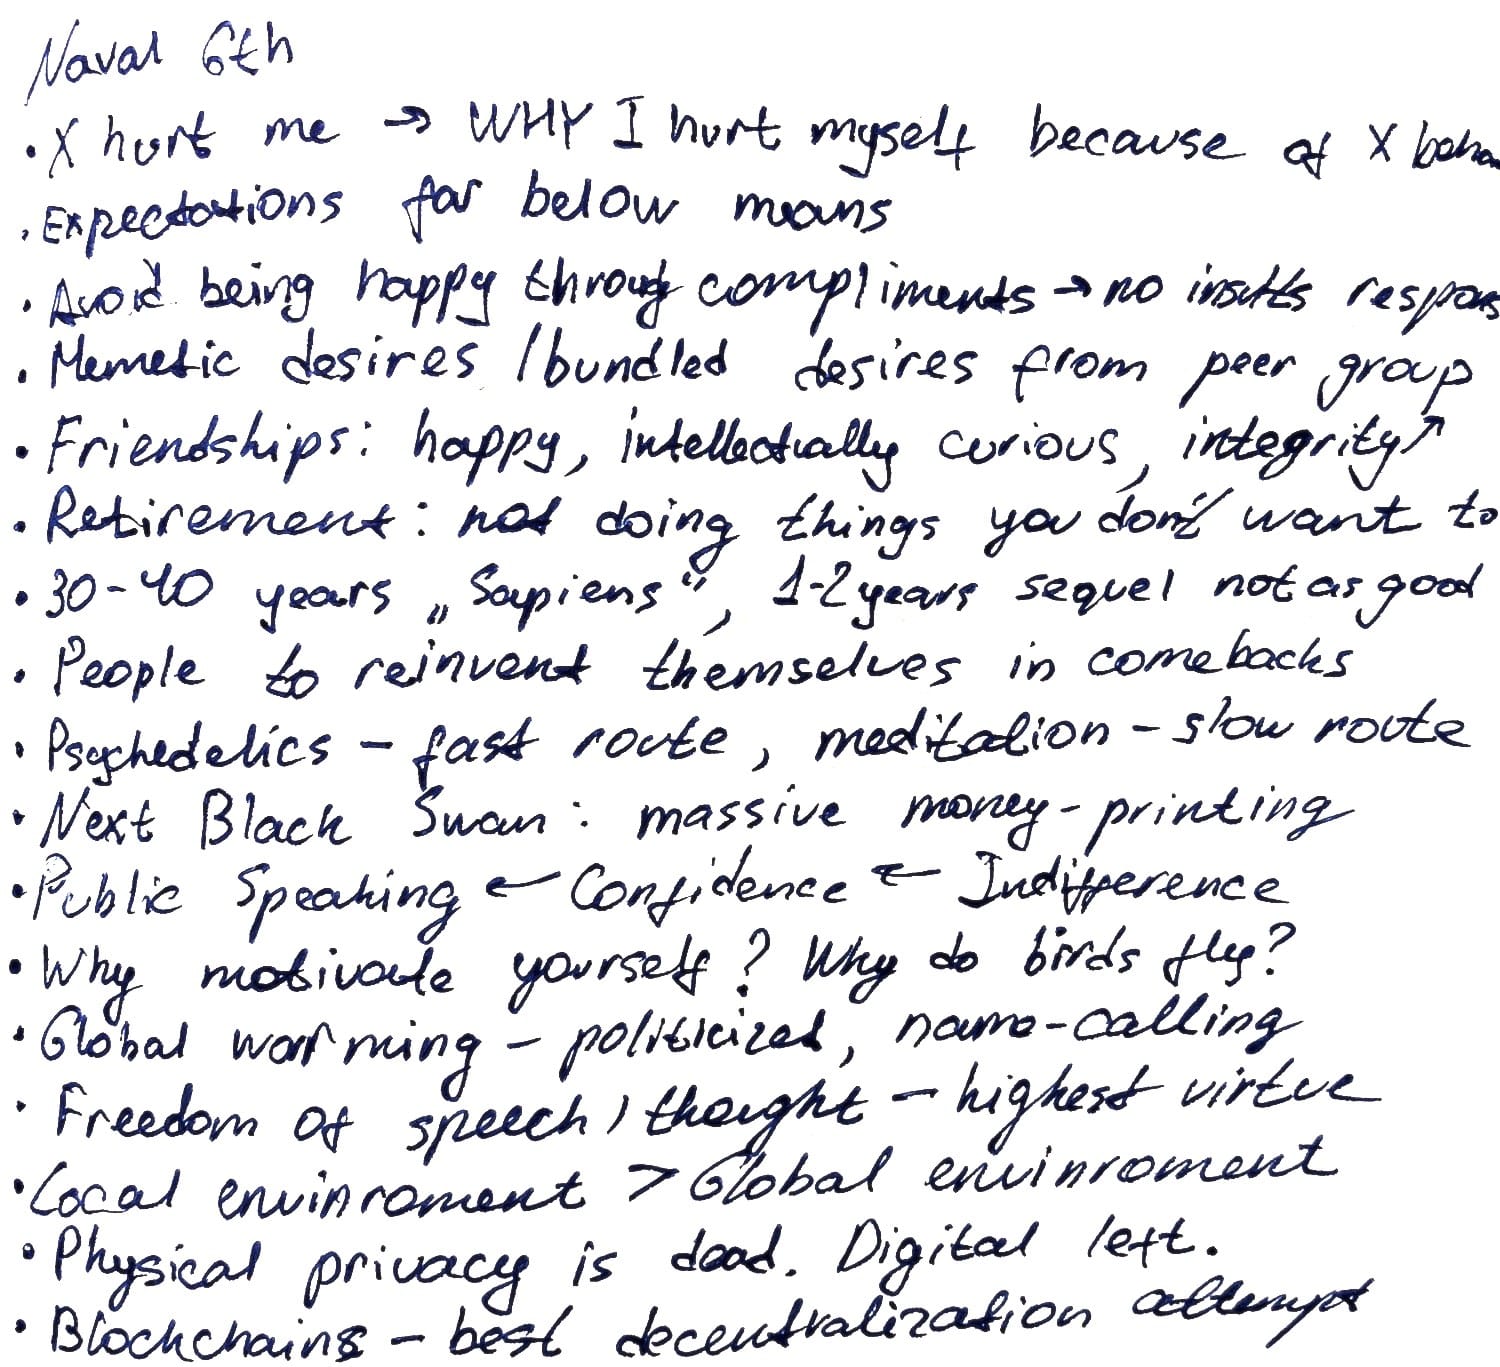 Naval 6th
• X hurt me → WHY I hurt myself because of X beha
• Expectations far below means
• Avoid being happy throug compliments → no insults respons
• Memetic desires / bundled desires from peer group
• Friendships: happy, intellectually curious, integrity↗
• Retirement: not doing things you don't want to
• 30-40 years „Sapiens", 1-2 years sequel not as good
• People to reinvent themselves in comebacks
• Psychedelics – fast route, meditation – slow route
• Next Black Swan: massive money-printing
• Public Speaking ← Confidence ← Indifference
• Why motivate yourself? Why do birds fly?
• Global warming – politicized, name-calling
• Freedom of speech, thought – highest virtue
• Local envinroment > Global envinroment
• Physical privacy is dead. Digital left.
• Blockchains – best decentralization attempt